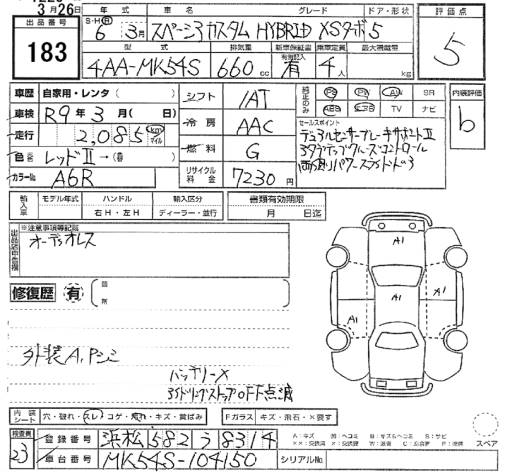 3月26日
出品番号
183
年式 車名 グレード ドア・形状
S・H・R 6年 3月 スペーシアカスタム HYBRID XSターボ 5
型式 排気量 新車保証書 乗車定員 最大積載量
4AA-MK54S 660cc 有 4人 kg
評価点
5
車歴 自家用・レンタ
車検 R9年3月(日)
走行 2,085 km マイル
色 レッドⅡ
カラーNo. A6R
シフト IAT
冷房 AAC
燃料 G
リサイクル料金 7230円
純正のみ PS PW AW SR
TV ナビ
セールスポイント
デュアルセンサーブレーキサポートⅡ
アダプティブクルーズコントロール
両側パワースライドドア
内装評価
b
輸入車 モデル年式 ハンドル 輸入区分
年 右H・左H ディーラー・並行
書類有効期限
月 日迄
※注意事項等記載
オーディオレス
修復歴 有
箇所
外装A,Pシミ
バッテリーX
アイドリングストップOFF点滅
A1
A1
A1
A1
内装シート 穴・破れ・スレ・コゲ・汚れ・キズ・黄ばみ
Fガラス キズ・飛石・X要す
検査員
23
登録番号 浜松 582 う 8314
車台番号 MK54S-104150
シリアルNo.
スペア